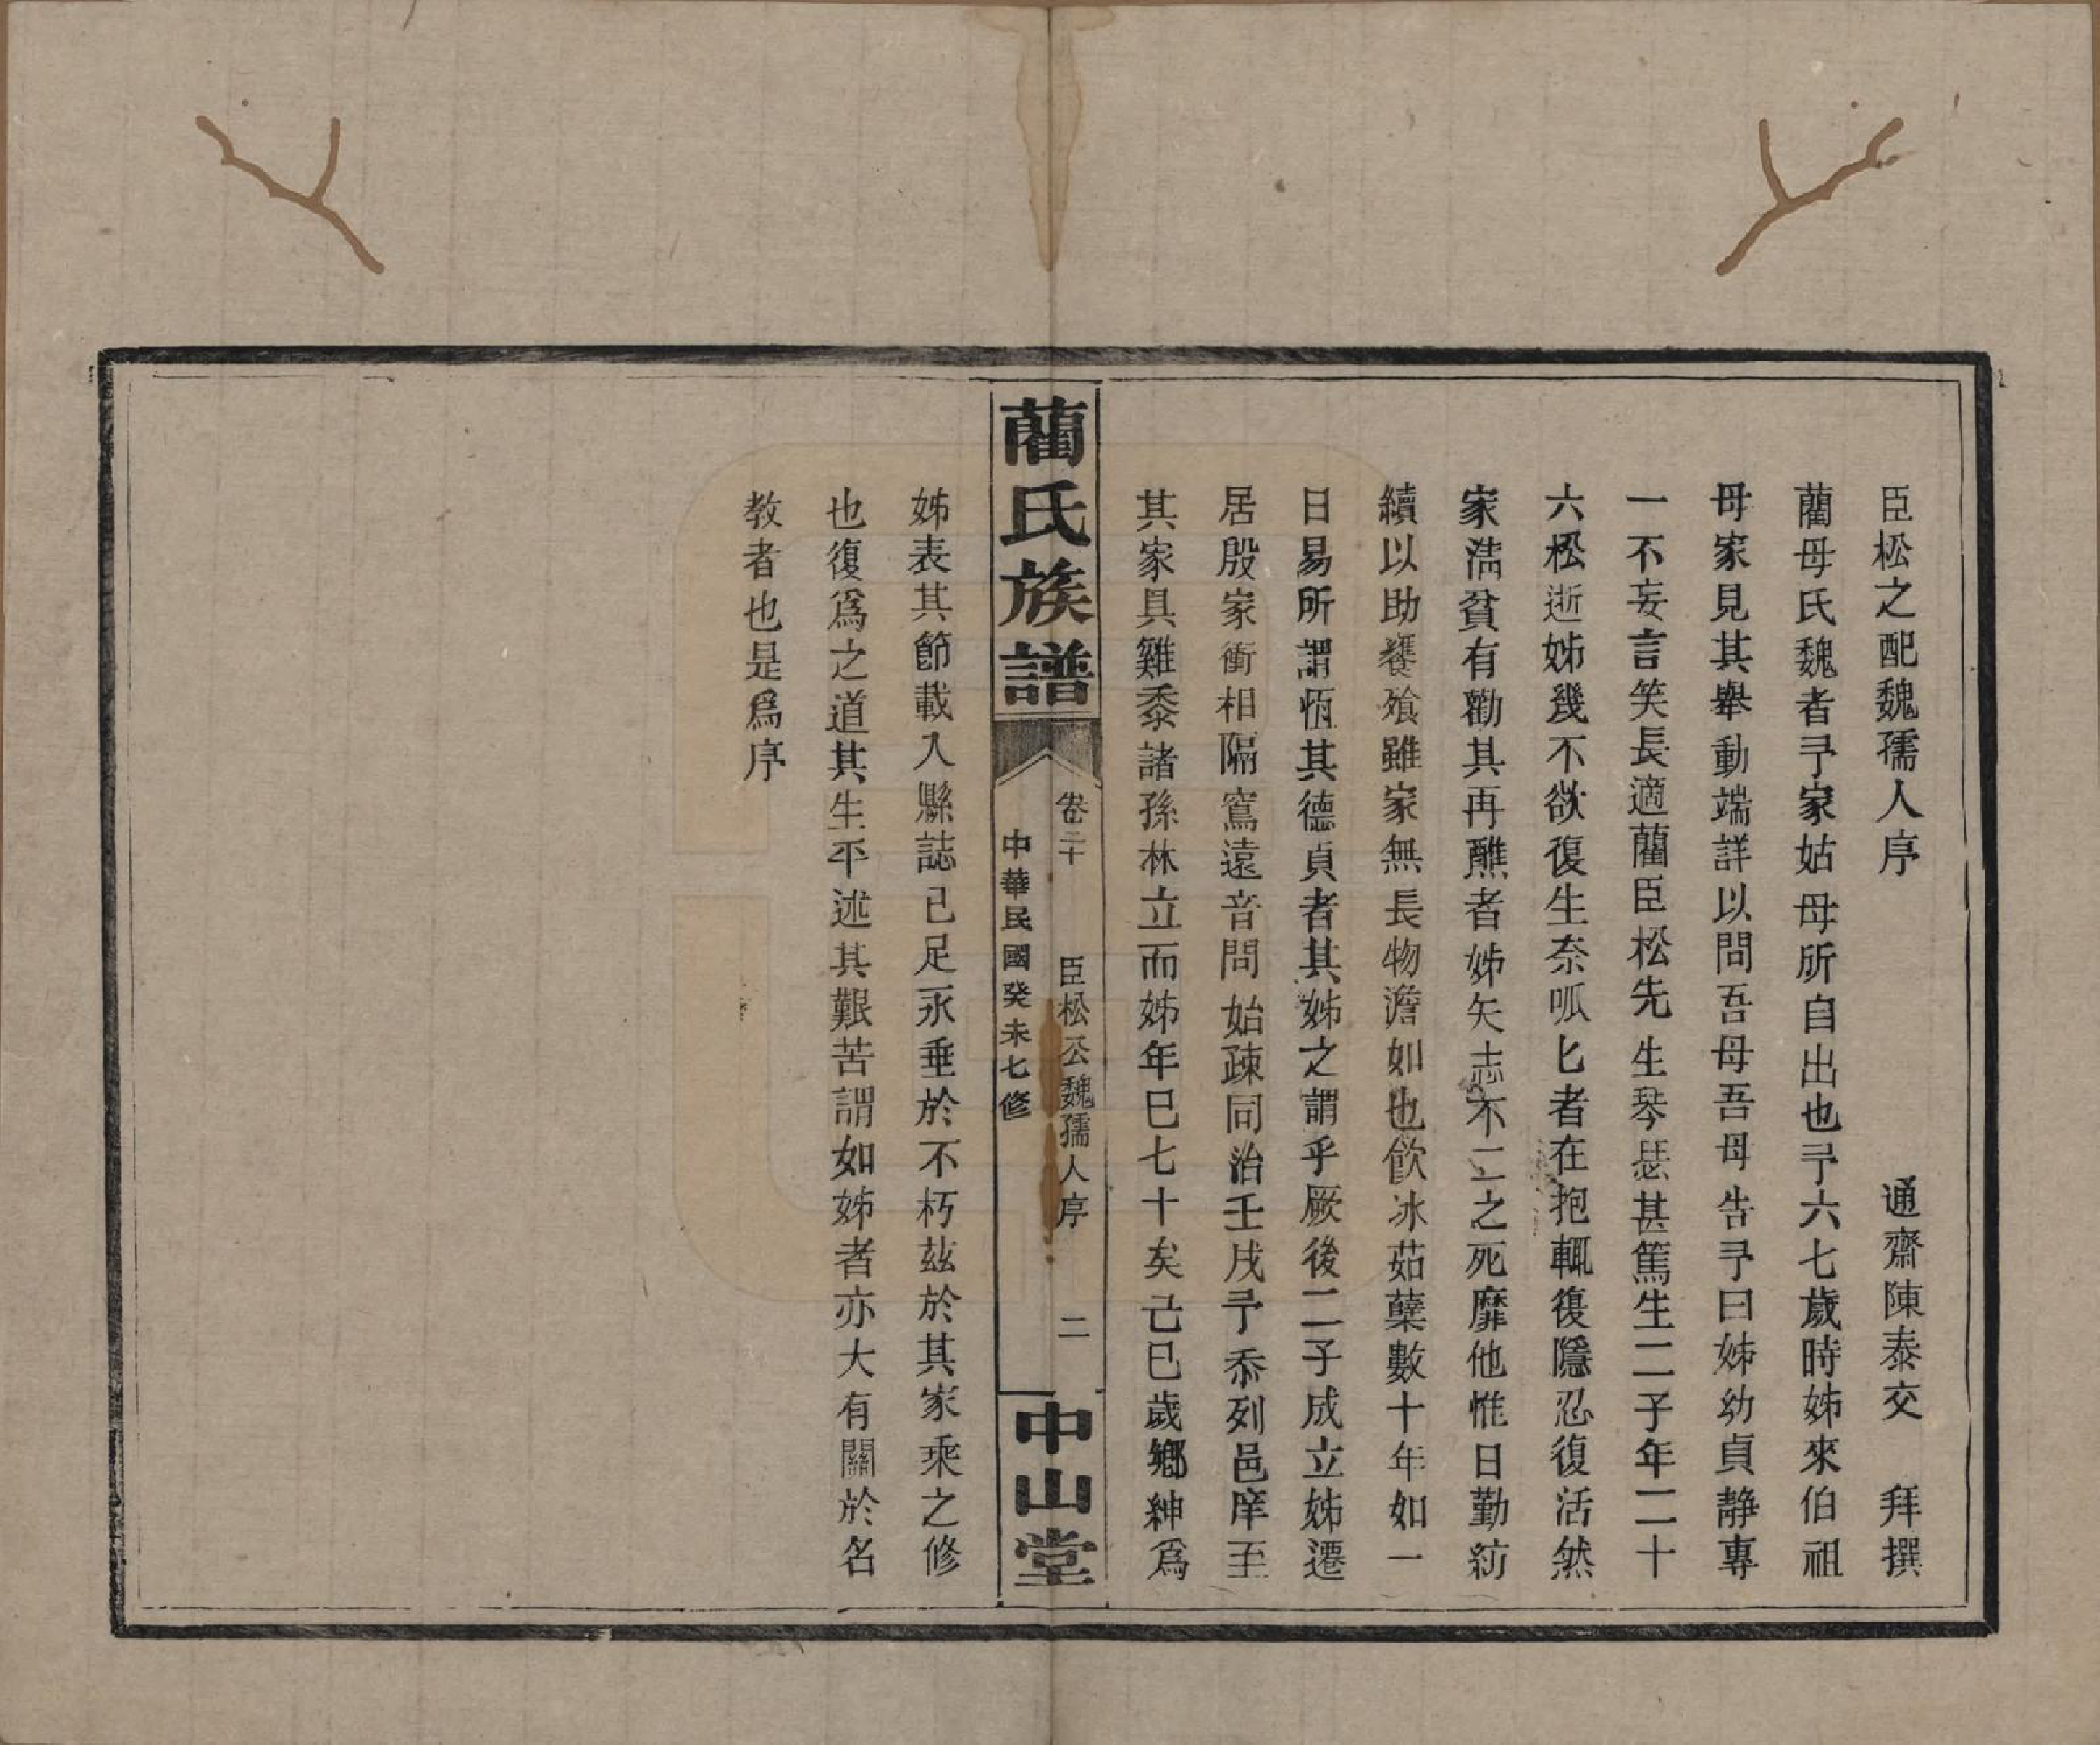 臣松之配魏孺人序　通齋陳泰交　拜撰
藺母氏魏者予家姑母所自出也予六七歲時姊來伯祖
母家見其舉動端詳以問吾母吾母告予曰姊幼貞靜專
一不妄言笑長適藺臣松先生琴瑟甚篤生二子年二十
六松逝姊幾不欲復生奈呱匕者在抱輒復隱忍復活然
家清貧有勸其再醮者姊矢志不二之死靡他惟日勤紡
績以助饔飧雖家無長物澹如也飲冰茹蘗數十年如一
日易所謂恆其德貞者其姊之謂乎厥後二子成立姊遷
居殷家衝相隔寫遠音問始疎同治壬戌予忝列邑庠至
其家具雞黍諸孫林立而姊年巳七十矣己巳歲鄉紳爲
藺氏族譜
卷二十　臣松公魏孺人序　二
中華民國癸未七修
中山堂
姊表其節載入縣誌已足永垂於不朽茲於其家乘之修
也復爲之道其生平述其艱苦謂如姊者亦大有關於名
教者也是爲序